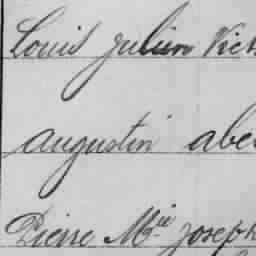 Louis Julien Vict
augustin abe
Pierre Mie Joseph